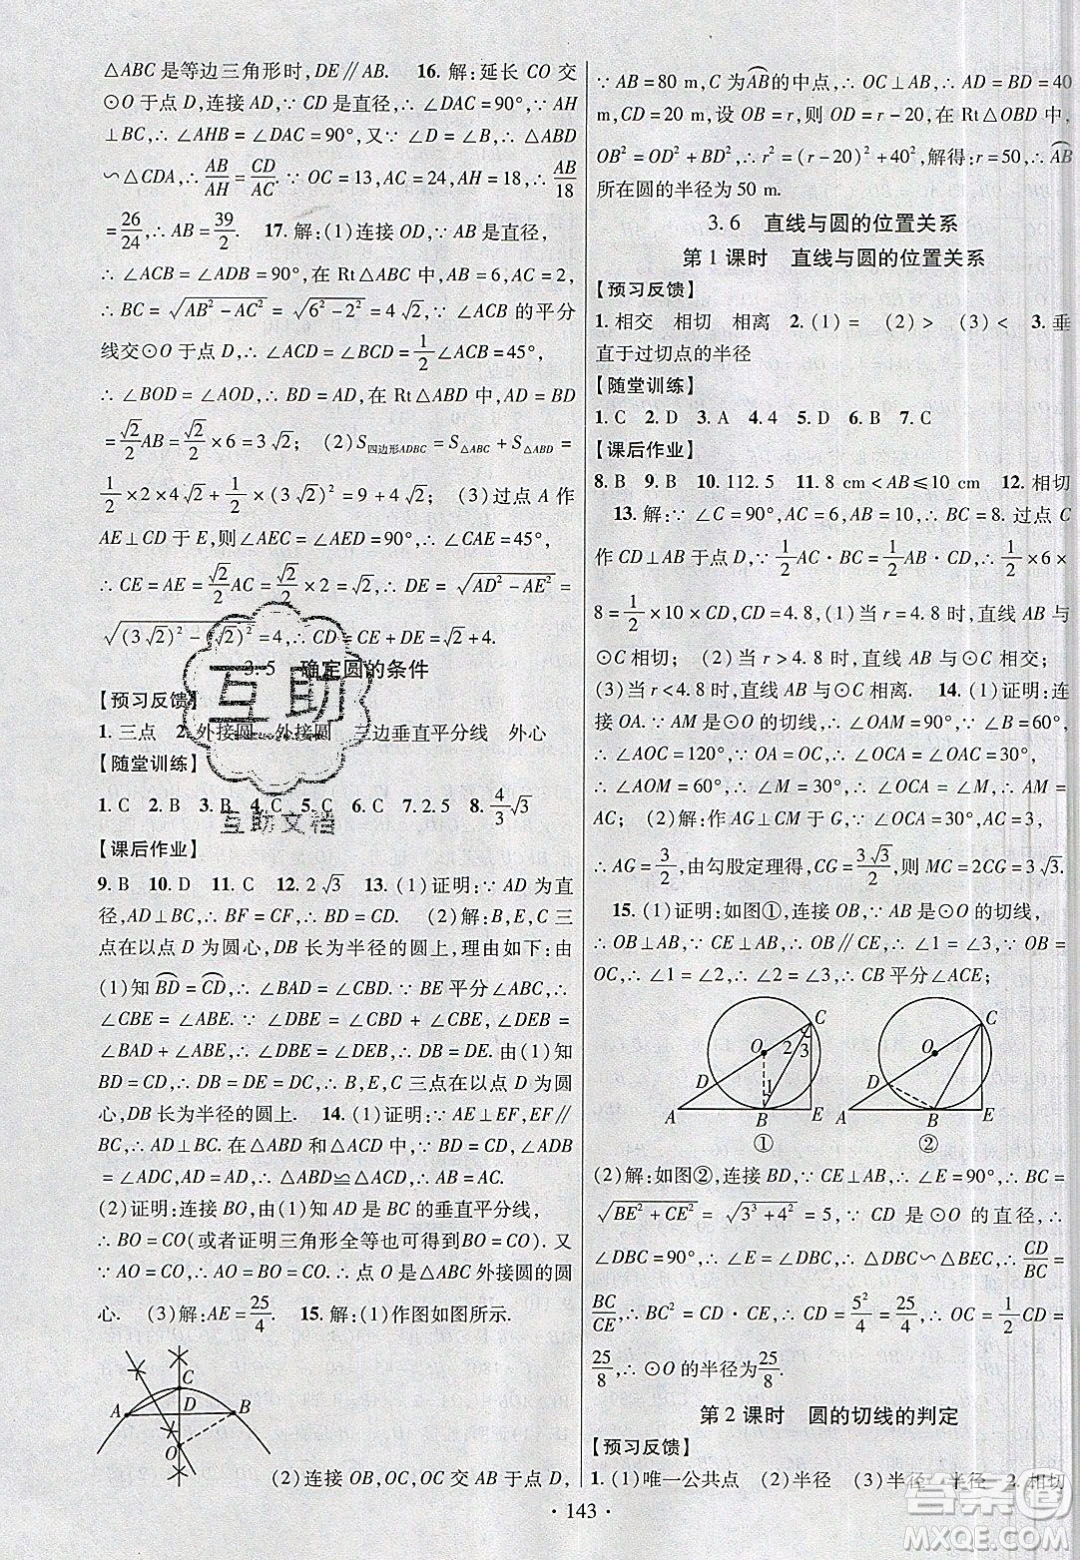 △ABC 是等边三角形时,DE∥AB. 16. 解:延长 CO 交
⊙O 于点 D,连接 AD,∵ CD 是直径,∴ ∠DAC = 90°,∵ AH
⊥BC,∴ ∠AHB = ∠DAC = 90°,又∵ ∠D = ∠B,∴ △ABD
∽△CDA,∴ AB/AH = CD/AC. ∵ OC = 13,AC = 24,AH = 18,∴ AB/18
= 26/24,∴ AB = 39/2. 17. 解:(1)连接 OD,∵ AB 是直径,
∴ ∠ACB = ∠ADB = 90°,在 Rt△ABC 中,AB = 6,AC = 2,
∴ BC = √(AB² − AC²) = √(6² − 2²) = 4√2,∵ ∠ACB 的平分
线交⊙O 于点 D,∴ ∠ACD = ∠BCD = 1/2∠ACB = 45°,
∴ ∠BOD = ∠AOD,∴ BD = AD,在 Rt△ABD 中,BD = AD
= √2/2 AB = √2/2 × 6 = 3√2; (2)S四边形ADBC = S△ABC + S△ABD =
1/2 × 2 × 4√2 + 1/2 × 3√2 × 3√2 = 9 + 4√2; (3)过点 A 作
AE⊥CD 于 E,则∠AEC = ∠AED = 90°,∵ ∠CAE = 45°,
∴ CE = AE = √2/2 AC = √2/2 × 2 = √2,∴ DE = √(AD² − AE²) =
√((3√2)² − (√2)²) = 4,∴ CD = CE + DE = √2 + 4.
3.5 确定圆的条件
【预习反馈】
1. 三点 2. 外接圆 外接圆 三边垂直平分线 外心
【随堂训练】
1. C 2. B 3. B 4. C 5. C 6. C 7. 2.5 8. 4/3√3
【课后作业】
9. B 10. D 11. C 12. 2√3 13. (1)证明:∵ AD 为直
径,AD⊥BC,∴ BF = CF,∴ BD = CD. (2)解:B,E,C 三
点在以点 D 为圆心,DB 长为半径的圆上,理由如下:由
(1)知 BD = CD,∴ ∠BAD = ∠CBD. ∵ BE 平分∠ABC,∴
∠CBE = ∠ABE. ∵ ∠DBE = ∠CBD + ∠CBE,∠DEB =
∠BAD + ∠ABE,∴ ∠DBE = ∠DEB,∴ BD = DE. 由(1)知
BD = CD,∴ BD = DE = CD,∴ B,E,C 三点在以点 D 为圆
心,DB 长为半径的圆上. 14. (1)证明:∵ AE⊥EF,EF∥
BC,∴ AD⊥BC. 在△ABD 和△ACD 中,∵ BD = CD,∠ADB
= ∠ADC,AD = AD,∴ △ABD≌△ACD,∴ AB = AC.
(2)证明:连接 BO,由(1)知 AD 是 BC 的垂直平分线,
∴ BO = CO(或者证明三角形全等也可得到 BO = CO). 又
∵ AO = CO,∴ AO = BO = CO,∴ 点 O 是△ABC 外接圆的圆
心. (3)解:AE = 25/4. 15. 解:(1)作图如图所示.
A B C D O
(2)连接 OB,OC,OC 交 AB 于点 D,
∵ AB = 80 m,C 为 AB 的中点,∴ OC⊥AB,∴ AD = BD = 40
m,CD = 20 m,设 OB = r,则 OD = r − 20,在 Rt△OBD 中,
OB² = OD² + BD²,∴ r² = (r − 20)² + 40²,解得:r = 50,∴ AB
所在圆的半径为 50 m.
3.6 直线与圆的位置关系
第 1 课时 直线与圆的位置关系
【预习反馈】
1. 相交 相切 相离 2. (1) = (2) > (3) < 3. 垂
直于过切点的半径
【随堂训练】
1. C 2. D 3. A 4. 4 5. D 6. B 7. C
【课后作业】
8. B 9. B 10. 112.5 11. 8 cm < AB ≤ 10 cm 12. 相切
13. 解:∵ ∠C = 90°,AC = 6,AB = 10,∴ BC = 8. 过点 C
作 CD⊥AB 于点 D,∵ 1/2 AC·BC = 1/2 AB·CD,∴ 1/2 × 6 ×
8 = 1/2 × 10 × CD,CD = 4.8,(1)当 r = 4.8 时,直线 AB 与
⊙C 相切; (2)当 r > 4.8 时,直线 AB 与⊙C 相交;
(3)当 r < 4.8 时,直线 AB 与⊙C 相离. 14. (1)证明:连
接 OA. ∵ AM 是⊙O 的切线,∴ ∠OAM = 90°,∵ ∠B = 60°,
∴ ∠AOC = 120°,∵ OA = OC,∴ ∠OCA = ∠OAC = 30°,
∴ ∠AOM = 60°,∴ ∠M = 30°,∴ ∠OCA = ∠M,∴ AM =
AC; (2)解:作 AG⊥CM 于 G,∵ ∠OCA = 30°,AC = 3,
∴ AG = 3/2,由勾股定理得,CG = 3√3/2,则 MC = 2CG = 3√3.
15. (1)证明:如图①,连接 OB,∵ AB 是⊙O 的切线,
∴ OB⊥AB,∵ CE⊥AB,∴ OB∥CE,∴ ∠1 = ∠3,∵ OB =
OC,∴ ∠1 = ∠2,∴ ∠2 = ∠3,∴ CB 平分∠ACE;
A D O C B E 1 2 3 ①
A D O C B E ②
(2)解:如图②,连接 BD,∵ CE⊥AB,∴ ∠E = 90°,∴ BC =
√(BE² + CE²) = √(3³ + 4²) = 5,∵ CD 是⊙O 的直径,∴
∠DBC = 90°,∴ ∠E = ∠DBC,∴ △DBC∽△BEC,∴ CD/BC =
BC/CE,∴ BC² = CD·CE,∴ CD = 5²/4 = 25/4,∴ OC = 1/2 CD =
25/8,∴ ⊙O 的半径为 25/8.
第 2 课时 圆的切线的判定
【预习反馈】
1. (1)唯一公共点 (2)半径 (3)半径 半径 2. 相切
· 143 ·
互助
互助文档
答案圈
MXQE.COM